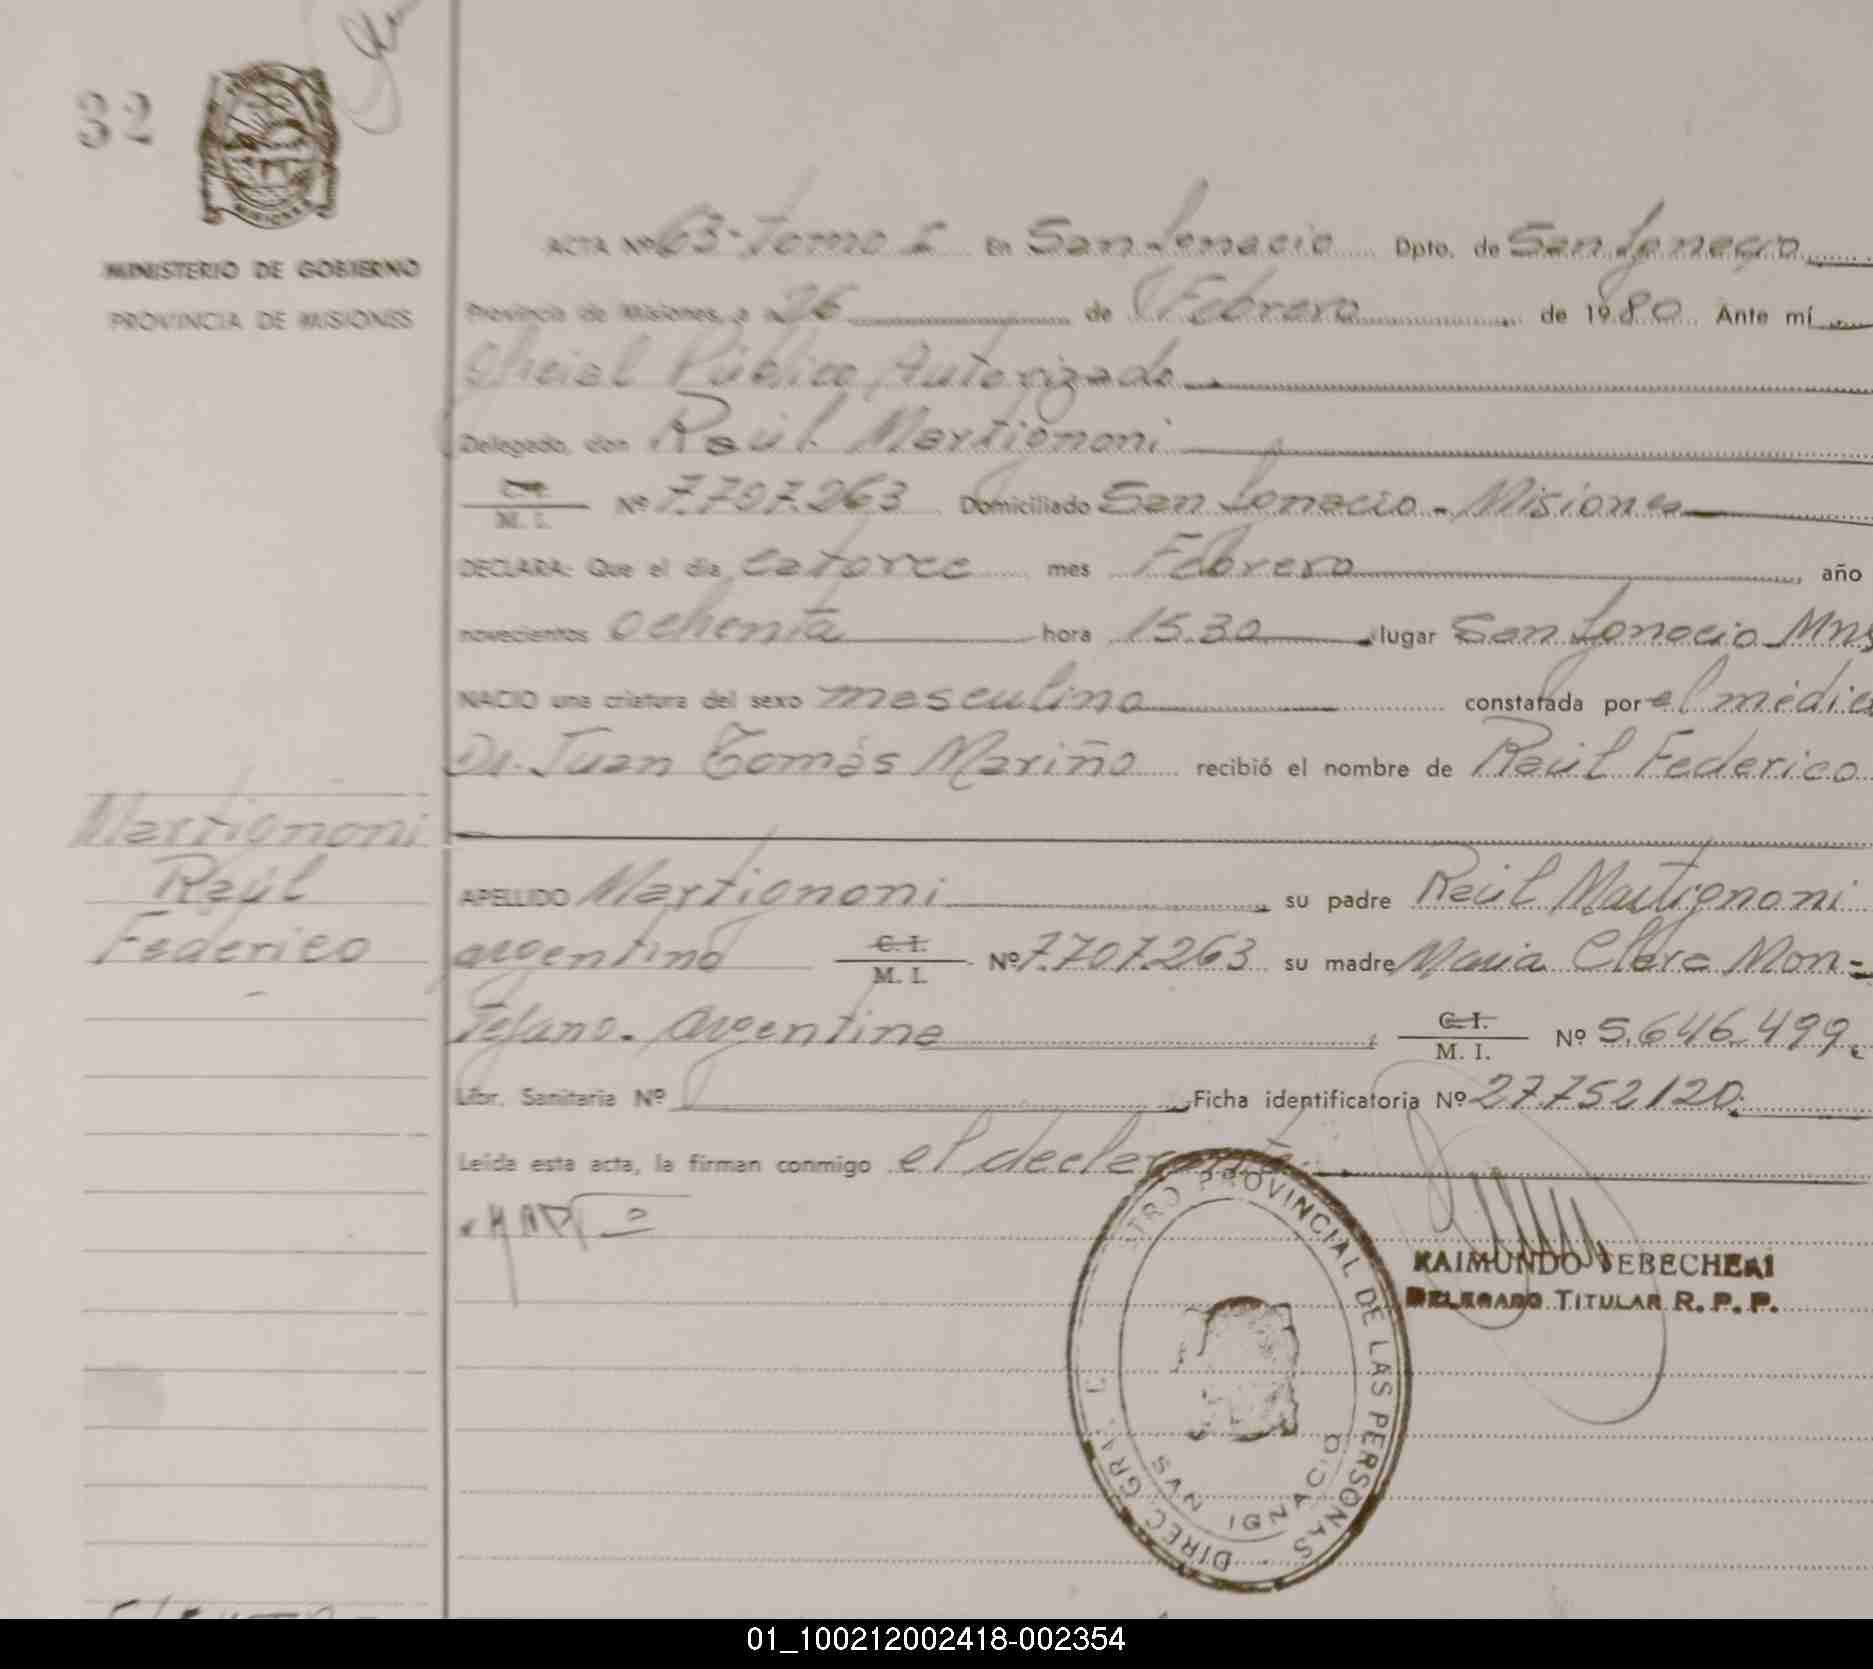 32
MISIONES
MINISTERIO DE GOBIERNO
PROVINCIA DE MISIONES
ACTA Nº 63-Tomo I En San Ignacio Dpto. de San Ignacio
Provincia de Misiones, a 26 de Febrero de 1980 Ante mí
Oficial Público Autorizado
Delegado, don Raúl Martignoni
C.I. M. I. Nº 7.707.263 Domiciliado San Ignacio - Misiones
DECLARA: Que el día catorce mes Febrero año
novecientos ochenta hora 15.30 lugar San Ignacio Mns
NACIO una criatura del sexo masculino constatada por el médic
Dr. Juan Tomás Mariño recibió el nombre de Raúl Federico
Martignoni
Raúl
Federico
APELLIDO Martignoni su padre Raúl Martignoni
argentino C.I. M. I. Nº 7.707.263 su madre Maria Clara Mon-
tejano. argentina C.I. M. I. Nº 5.646.499
Libr. Sanitaria Nº Ficha identificatoria Nº 27.752.120
Leída esta acta, la firman conmigo el declarante.
RAIMUNDO
DELEGADO TITULAR R. P. P.
PROVINCIAL DE LAS PERSONAS
DIREC. GRAL.
SAN IGNACIO
01_100212002418-002354